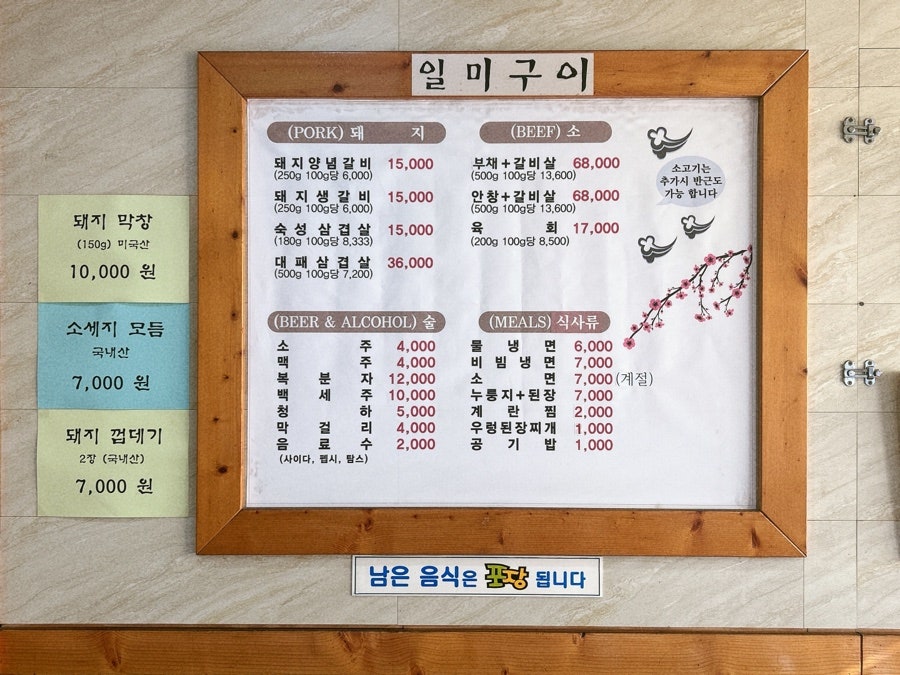 일미구이
(PORK) 돼 지
돼지양념갈비 15,000
(250g 100g당 6,000)
돼지생갈비 15,000
(250g 100g당 6,000)
숙성삼겹살 15,000
(180g 100g당 8,333)
대패삼겹살 36,000
(500g 100g당 7,200)
(BEEF) 소
부채+갈비살 68,000
(500g 100g당 13,600)
안창+갈비살 68,000
(500g 100g당 13,600)
육 회 17,000
(200g 100g당 8,500)
소고기는
추가시 반근도
가능 합니다
(BEER & ALCOHOL) 술
소 주 4,000
맥 주 4,000
복 분 자 12,000
백 세 주 10,000
청 하 5,000
막 걸 리 4,000
음 료 수 2,000
(사이다, 펩시, 탐스)
(MEALS) 식사류
물 냉 면 6,000
비 빔 냉 면 7,000
소 면 7,000 (계절)
누룽지+된장 7,000
계 란 찜 2,000
우렁된장찌개 1,000
공 기 밥 1,000
돼지 막창
(150g) 미국산
10,000 원
소세지 모듬
국내산
7,000 원
돼지 껍데기
2장 (국내산)
7,000 원
남은 음식은 포장 됩니다